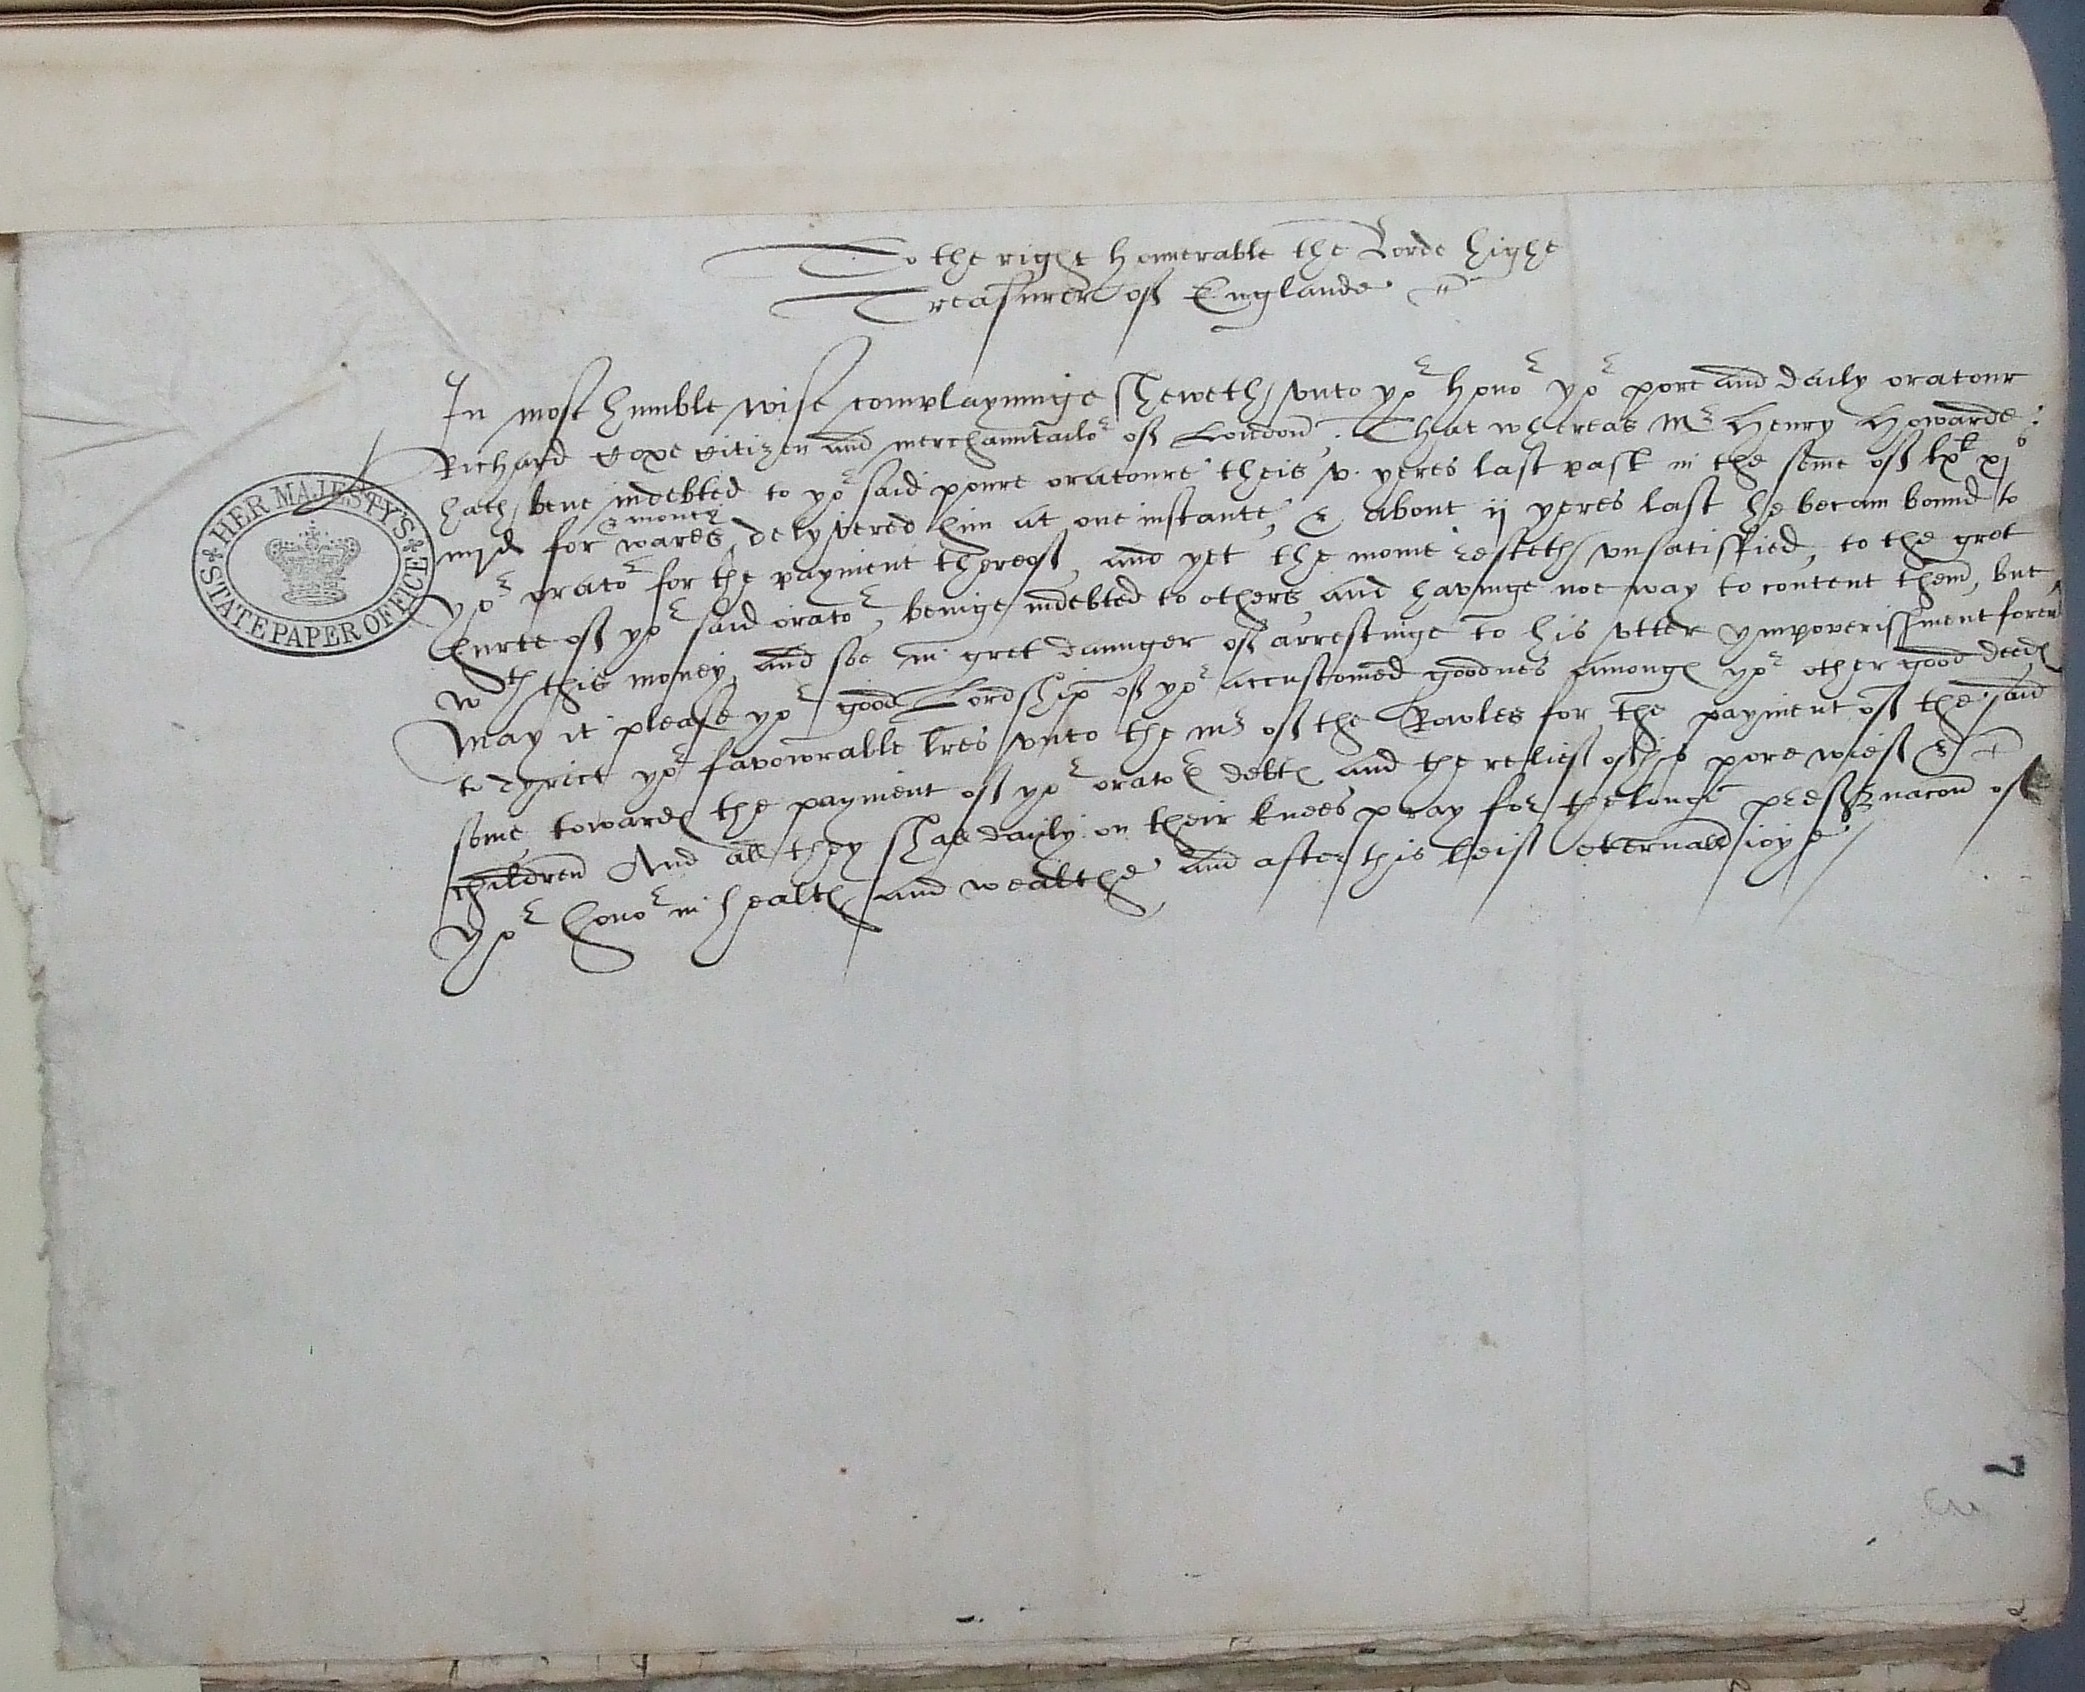 To the right honnerable the Lorde highe
Treasurer off Englande
In most humble wise complayninge sheweth vnto yor honor yor pore and daily oratour
Richard Coxe Citizen and merchanntailor off London. That whereas Mr Henry Howarde
hath bene indebted to yor said poure oratoure theis v. yeres last past in the some off lxli xjs
iiijd for wares & money delyvered him at one instante, & about ij yeres last he becam bound to
yor orator for the payment thereoff, and yet the monie resteth vnsatisfied, to the gret
hurte off yor said orator, beinge indebted to others and havinge noe way to content them, but
wth this money, and soe in gret daunger off arrestinge to his vtter ympoverishment forever
May it please yor good Lordship off yor accustomed goodnes amonge yor other good deedes
to dyrict yor favowrable lres vnto the mr off the Rowles for the payment off the said
some towardes the payment off yor orators debtes and the relieff off his pore wieff &
children And all they shall dayly on their knees pray for the longe preservacon off
yor honor in healthe and wealthe, and after this leiff eternall ioye
HER MAJESTY'S STATE PAPER OFFICE
7